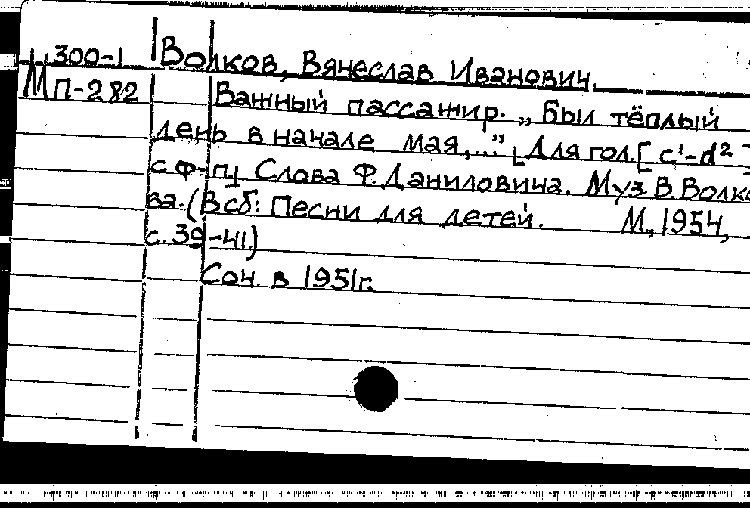 Ц300-1 Волков, Вячеслав Иванович.
МП-282 Важный пассажир. „Был тёплый
день в начале мая,..." [Для гол.[c¹-d²]
с ф-п] Слова Ф. Даниловича. Муз В. Волко
ва. (В сб: Песни для детей. М., 1954,
с. 39-41.)
Соч. в 1951г.